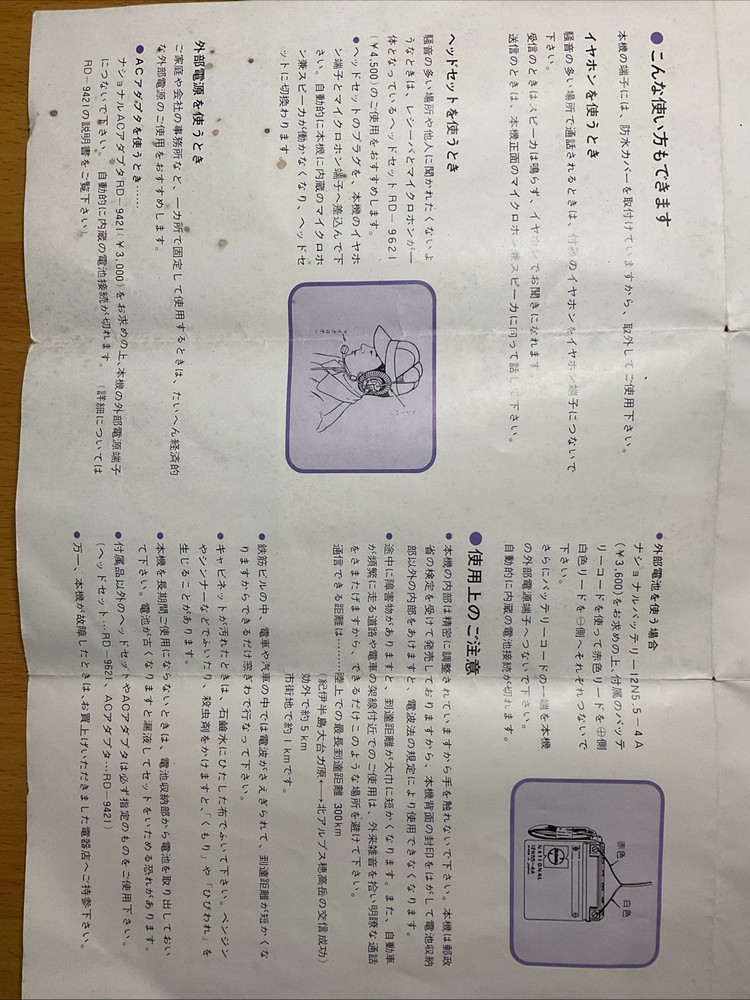 ●こんな使い方もできます
本機の端子には、防水カバーを取付けていますから、取外してご使用下さい。
イヤホンを使うとき
騒音の多い場所で通話されるときは、付属のイヤホンをイヤホン端子につないで
下さい。
受信のときはスピーカは鳴らず、イヤホンでお聞きになれます
送信のときは、本機正面のマイクロホン兼スピーカに向って話して下さい。
ヘッドセットを使うとき
騒音の多い場所や他人に聞かれたくないよ
うなときは、レシーバとマイクロホンが一
体となっているヘッドセットRD-9621
(¥4,500)のご使用をおすすめします。
●ヘッドセットのプラグを、本機のイヤホ
ン端子とマイクロホン端子へ差込んで下
さい。自動的に本機に内蔵のマイクロホ
ン兼スピーカが働かなくなり、ヘッドセ
ットに切換わります。
マイクロホン
外部電源を使うとき
ご家庭や会社の事務所など、一カ所で固定して使用するときは、たいへん経済的
な外部電源のご使用をおすすめします。
●ACアダプタを使うとき……
ナショナルACアダプタRD-9421(¥3,000)をお求めの上、本機の外部電源端子
につないで下さい。自動的に内蔵の電池接続が切れます。(詳細については
RD-9421の説明書をご覧下さい)
●外部電池を使う場合
ナショナルバッテリー12N5.5-4A
(¥3,600)をお求めの上、付属のバッテ
リーコードを使って赤色リードを⊕側
白色リードを⊖側へそれぞれつないで
下さい。
さらにバッテリーコードの一端を本機
の外部電源端子へつないで下さい。
自動的に内蔵の電池接続が切れます。
赤色
白色
NATIONAL
12N5.5-4A
●使用上のご注意
●本機の内部は精密に調整されていますから手を触れないで下さい。本機は郵政
省の検定を受けて発売しておりますから、本機背面の封印をはがして電池収納
部以外の内部をあけますと、電波法の規定により使用できなくなります。
●途中に障害物がありますと、到達距離が大巾に短かくなります。また、自動車
が頻繁に走る道路や電車の架線付近でのご使用は、外来雑音を拾い明瞭な通話
をさまたげますから、できるだけこのような場所を避けて下さい。
通信できる距離は………陸上での最長到達距離 300km
(紀伊半島大台カ原⟷北アルプス穂高岳の交信成功)
郊外で約5km
市街地で約1kmです。
●鉄筋ビルの中、電車や汽車の中では電波がさえぎられて、到達距離が短かくな
りますからできるだけ窓ぎわで行なって下さい。
●キャビネットが汚れたときは、石鹸水にひたした布でふいて下さい。ベンジン
やシンナーなどでふいたり、殺虫剤をかけますと、「くもり」や「ひびわれ」を
生じることがあります。
●本機を長期間ご使用にならないときは、電池収納部から電池を取り出しておい
て下さい。電池が古くなりますと漏液してセットをいためる恐れがあります。
●付属品以外のヘッドセットやACアダプタは必ず指定のものをご使用下さい。
(ヘッドセット…RD-9621 ACアダプタ…RD-9421)
●万一、本機が故障したときは、お買上げいただきました電器店へご持参下さい。